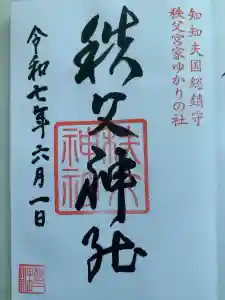 知知夫国総鎮守
秩父宮家ゆかりの社
秩父神社
令和七年六月一日